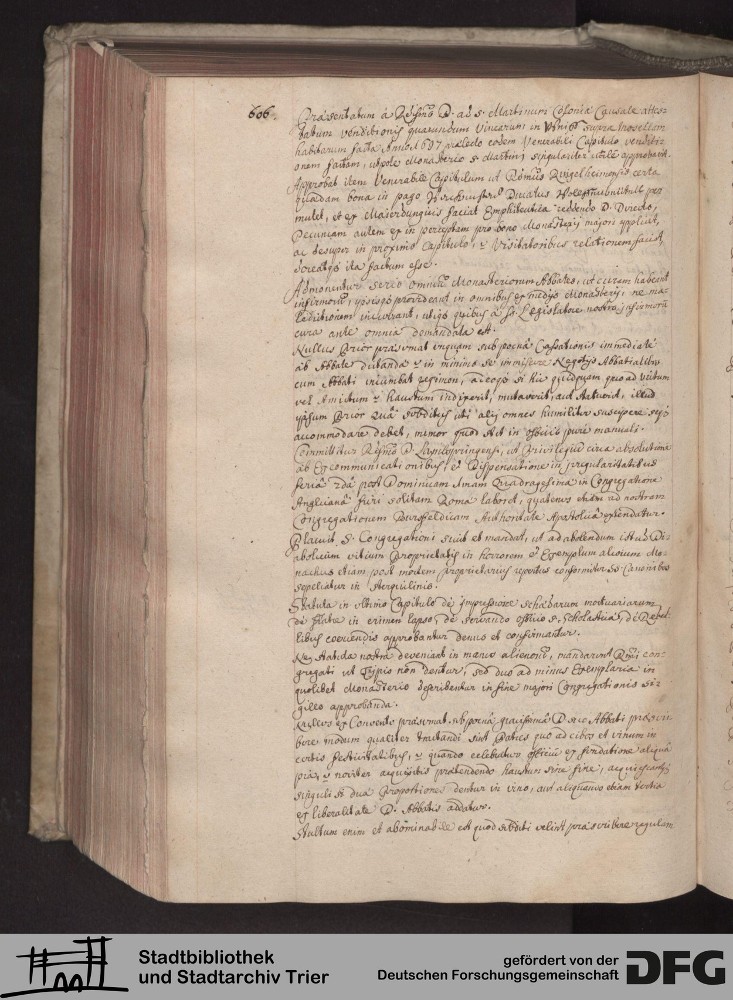 606.
Præsentatum a R\[mo\] D. ad S. Martinum Coloniæ Causale attes-
tatum venditionis quarundum vinearum in supra Mosellam
habitarum facta, Anno 1607 prælecto eodem Venerabili Capitulo venditi-
onem factam, utpote Monasterio S. Martini singulariter utile approbavit.
Approbat item Venerabile Capitulum ut certa
quædam bona in pago Ducatus per-
mutet, et ex faciat Emphiteutica reddendo D. Directo,
Pecuniam autem ex in perceptam pro bono Monasterij majori applicat,
ac desuper in proximo Capitulo, vel Visitatoribus relationem faciat,
ita factum esse.
Admonentur serio omnium Monasteriorum Abbates, ut curam habeant
infirmorum, ipsisque provideant in omnibus ex medijs Monasterij, ne ma-
ledictionem incurrant, utique quibus a S. Legislatore nostro infirmorum
cura ante omnia demandata est.
Nullus Prior præsumat unquam sub poena Cassationis immediate
ab Abbate dictanda vel in minimo se immiscere Negotijs Abbatialibus
cum Abbati incumbat regimen, adeoque si hic quidquam quoad victum
vel Amictum vel haustum indixerit, mutaverit, aut statuerit, illud
ipsum Prior quam subditus uti alij omnes humiliter suscipere seque
accommodare debet, memor quod sit in officio pure manuali.
Committitur R\[mo\] D. ut Privilegium circa absolutionem
ab Excommunicationibus, et Dispensatione in irregularitatibus
feria 2da post Dominicam Quadragesimæ in Congregatione
Anglicana fieri solitam Romæ laboret, quatenus etiam ad nostram
Congregationem Bursfeldicam Authoritate Apostolica extendatur.
Placuit S. Congregationi suis et mandat, ut ad abolendum istud Di-
abolicum vitium Proprietatis in horrorem et Exemplum aliorum Mo-
nachus etiam post mortem proprietarius repertus conformiter SS. Canonibus
sepeliatur in sterquilinio.
Statuta in ultimo Capitulo de Impressione schedarum mortuariarum,
de fratre in crimen lapso, de servando officio S. Scholasticæ, de Rebel-
libus coercendis approbantur denuo et confirmantur.
Ne statuta nostra deveniant in manus alienorum, mandarunt R\[mi\] con-
gregati ut Typis non dentur, sed duo ad minus Exemplaria in
quolibet Monasterio describantur in fine majori Congregationis si-
gillo approbanda.
Nullus ex Conventu præsumat sub poena gravissima D. suo Abbati præscri-
bere modum qualiter tractandi sint Patres quo ad cibos et vinum in
certis festivitatibus, vel quando celebratur officium ex fundatione aliqua
pia, vel noviter acquisitis prætendendo haustum sine fine, acquiescantque
singuli si duæ Propositiones dentur in vino, aut aliquando etiam tertia
ex liberalitate D. Abbatis addatur.
Stultum enim et abominabile est quod subditi velint præscribere regulam
Stadtbibliothek
und Stadtarchiv Trier
gefördert von der
Deutschen Forschungsgemeinschaft
DFG